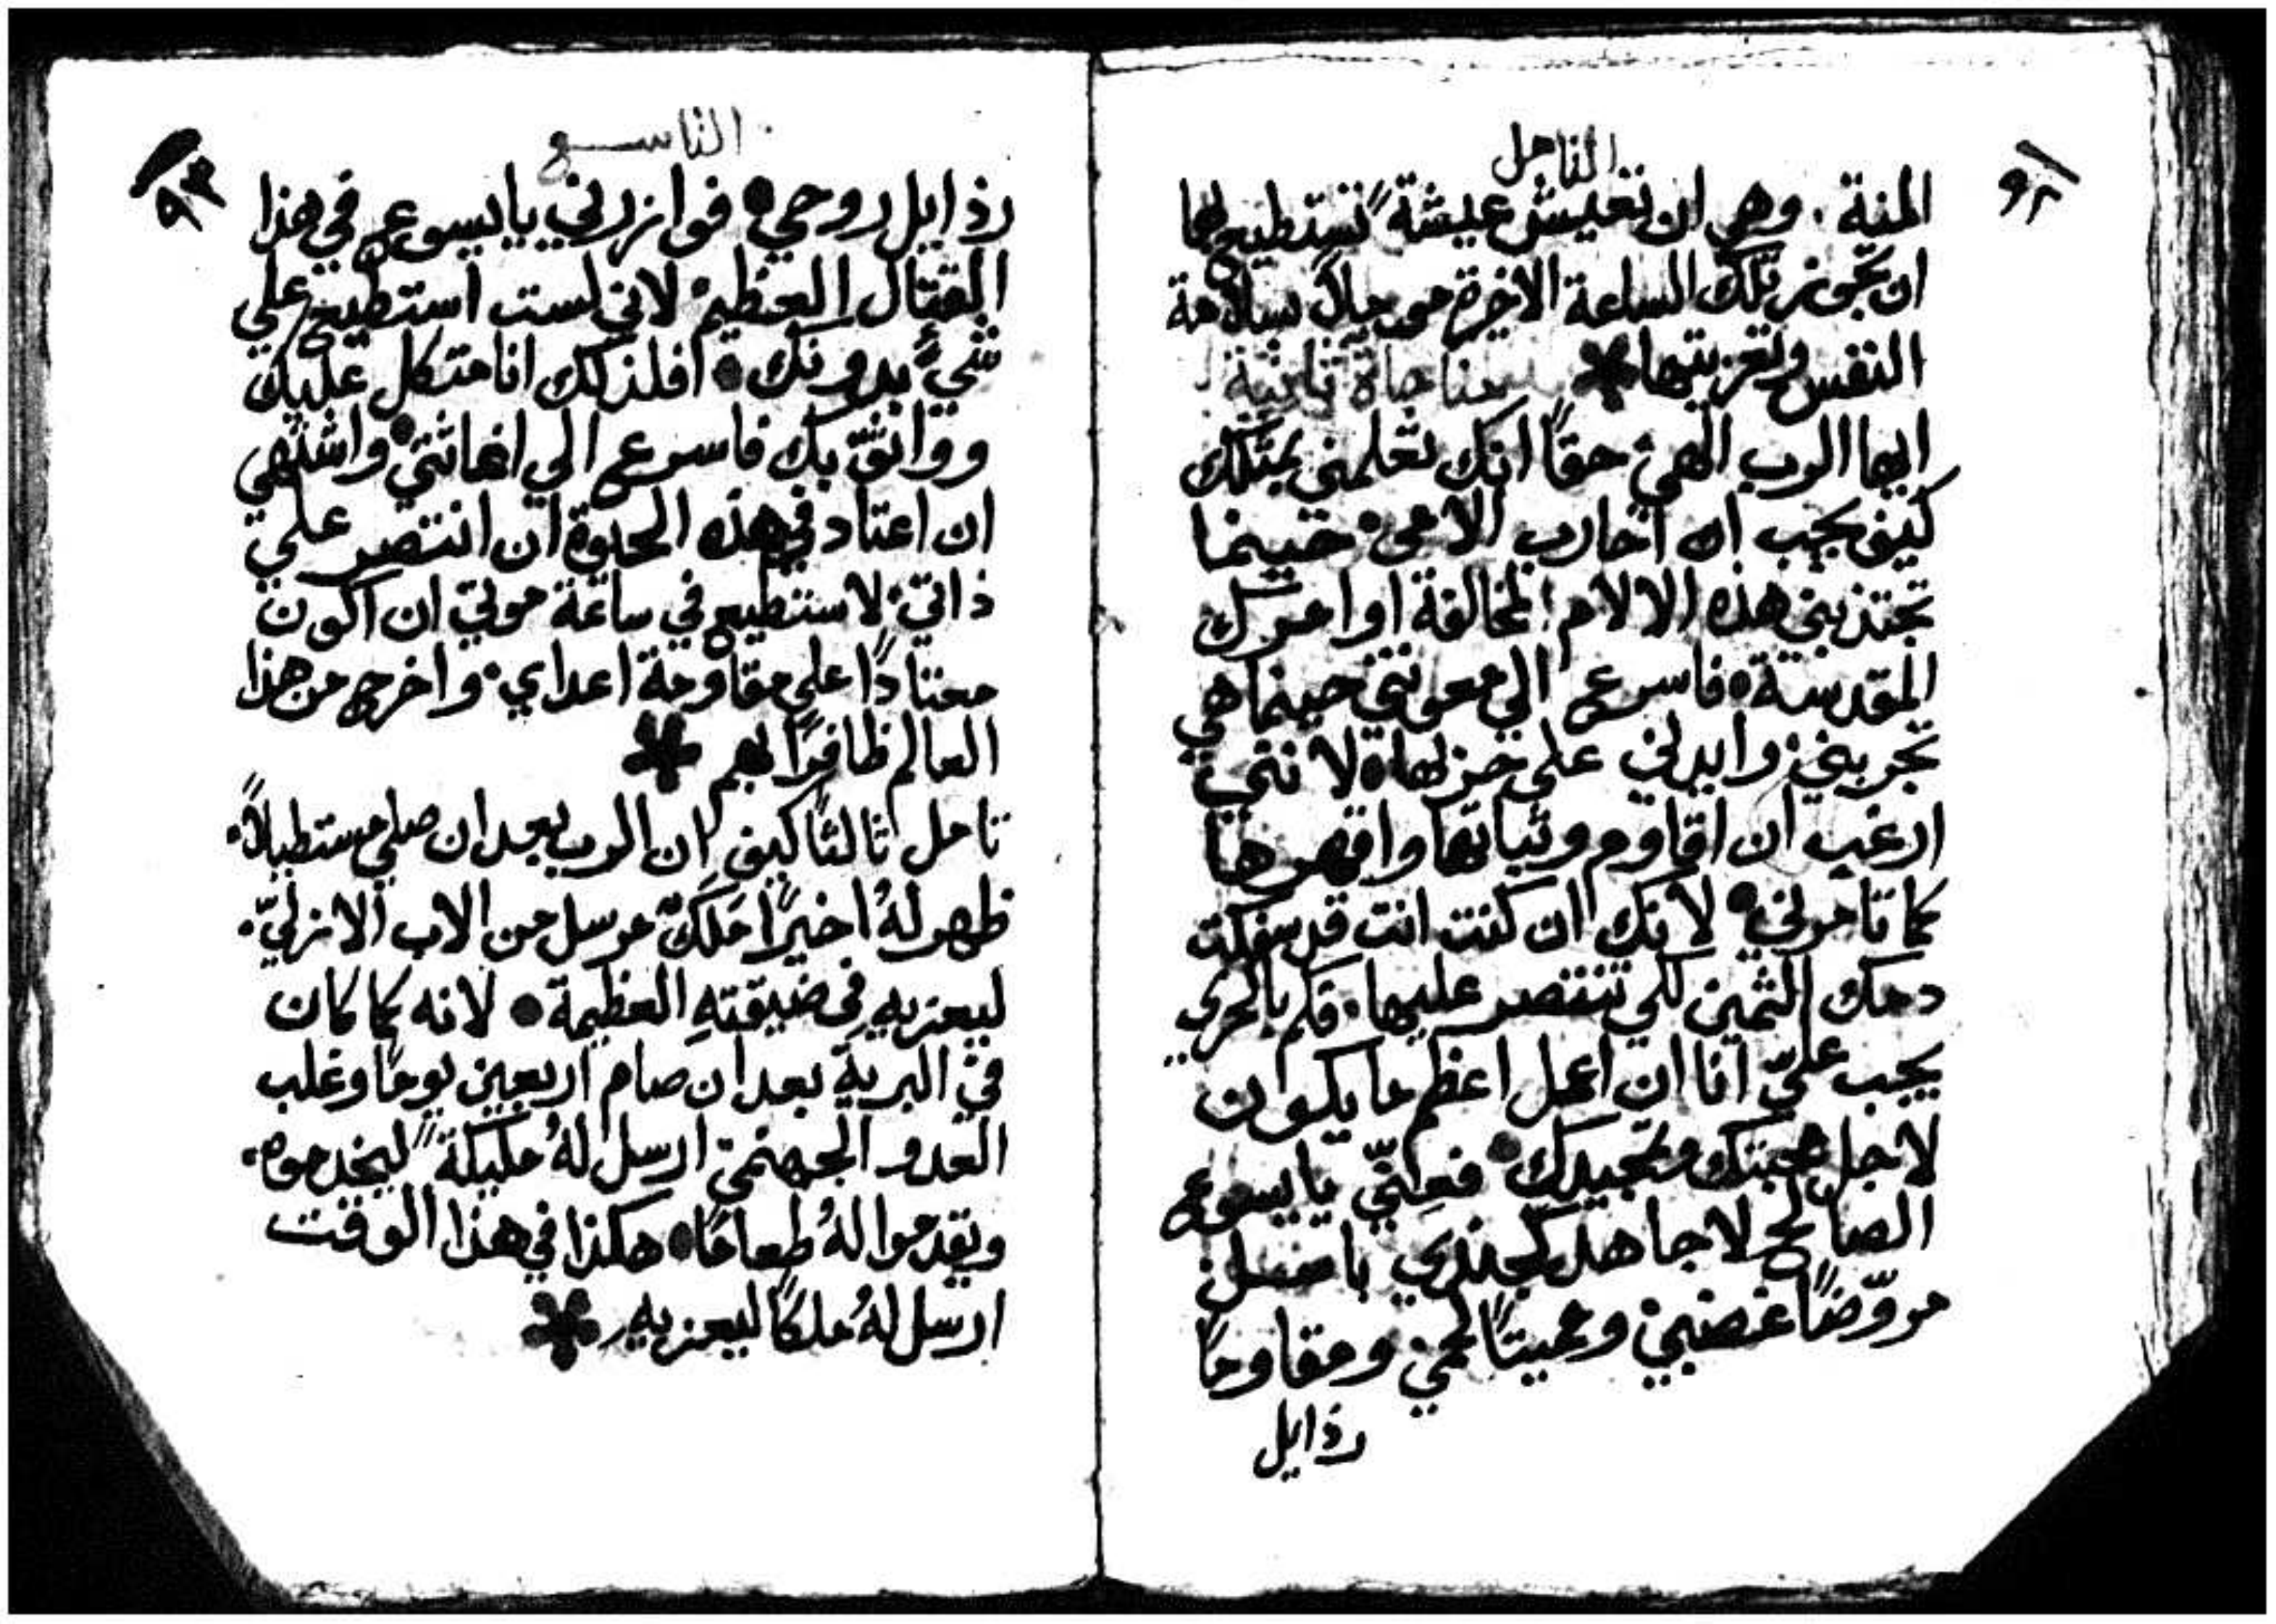 التامل
٩٢
المنة. وهي ان تعيش عيشة ً تستطيع بها
ان تجوز تلك الساعة الاخرة من حياتك بسلامة
النفس وتعزيتها * مناجاة ثانية
ايها الرب الهي حقًا انك تعلمني بمثلك
كيف يجب ان احارب الامي حينما
تجتذبني هذه الالام لمخالفة اوامرك
المقدسة • فاسرع الي معونتي حينما هي
تجربني وايدني على خزلها • لانني
ارغب ان اقاوم وثباتها واقهرها
كما تامرني • لانك ان كنت انت قد سفكت
دمك الثمين لكي تنتصر عليها. فكم بالحري
يجب عليّ انا ان اعمل اعظم ما يكون
لاجل محبتك وتمجيدك • فعنّي يا يسوع
الصالح لاجاهد كجندي باسل
مروّضًا غضبي ومميتًا لحمي ومقاومًا
رذايل
التاسع
٩٣
رذايل روحي • فوازرني يا يسوع في هذا
القتال العظيم لاني لست استطيع علي
شيءٍ بدونك • افلذلك انا متكل عليك
وواثق بك فاسرع الي اغاثتي • واشتهي
ان اعتاد في هذه الحيوة ان انتصر علي
ذاتي لاستطيع في ساعة موتي ان اكون
معتادًا علي مقاومة اعداي. واخرج من هذا
العالم ظافرًا بهم *
تامل ثالثًا كيف ان الرب بعد ان صلي مستطيلاً.
ظهر لهُ اخيرًا مَلَكٌ مرسل من الاب الازليّ.
ليعزيه في ضيقتهِ العظيمة • لانه كما كان
في البرية بعد ان صام اربعين يومًا وغلب
العدو الجهنمي ارسل لهُ مليكة ً ليخدموه.
ويقدموا لهُ طعامًا • هكذا في هذا الوقت
ارسل لهُ ملكًا ليعزيه *